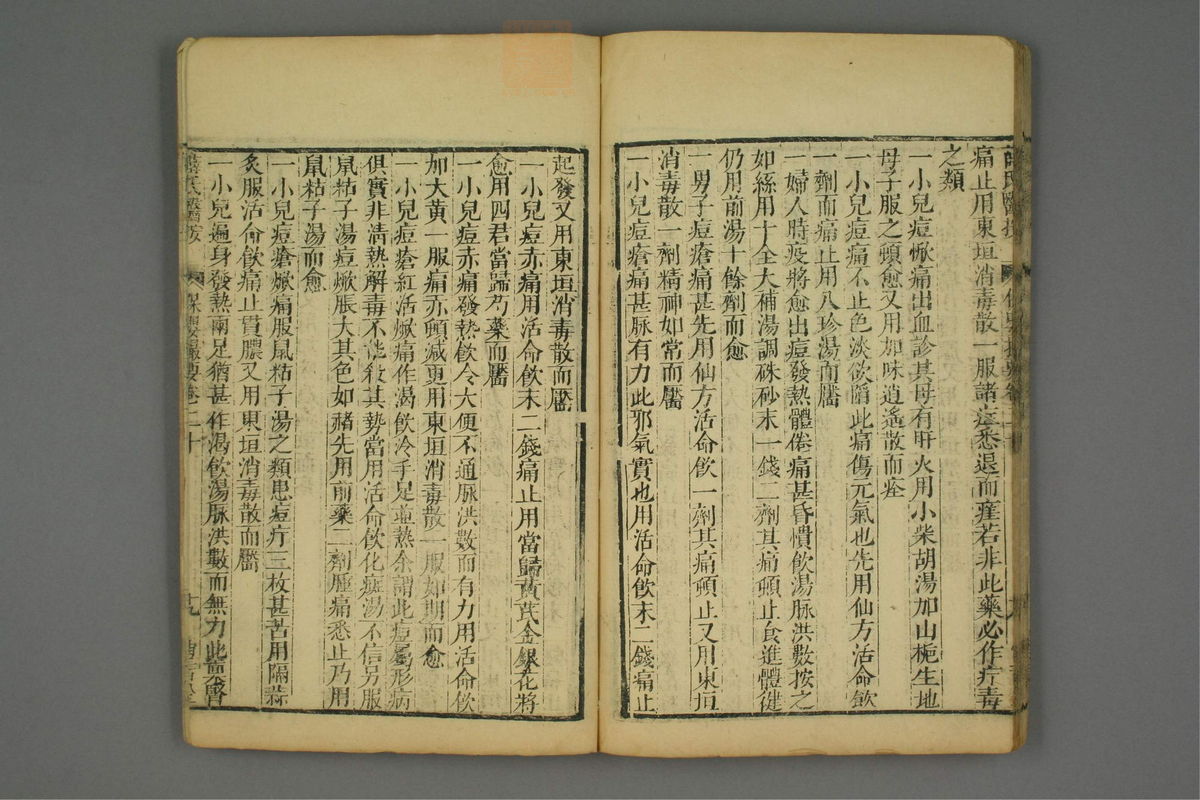 痛止用東垣消毒散一服諸症悉退而痊若非此藥必作疔毒
之類
一小兒痘㷮痛出血診其母有肝火用小柴胡湯加山梔生地
母子服之頓愈又用加味逍遙散而痊
一小兒痘痛不止色淡欲䧟此痛傷元氣也先用仙方活命飲
一劑而痛止用八珍湯而靨
一婦人時疫將愈出痘發熱體倦痛甚昏憒飲湯脉洪數按之
如絲用十全大補湯調硃砂末一錢二劑其痛頓止食進體健
仍用前湯十餘劑而愈
一男子痘瘡痛甚先用仙方活命飲一劑其痛頓止又用東垣
消毒散一劑精神如常而靨
一小兒痘瘡痛甚脉有力此邪氣實也用活命飲末二錢痛止
起發又用東垣消毒散而靨
一小兒痘赤痛用活命飲末二錢痛止用當歸黃芪金銀花將
愈用四君當歸芍藥而靨
一小兒痘赤痛發熱飲冷大便不通脉洪數而有力用活命飲
加大黃一服痛亦頓减更用東垣消毒散一服如期而愈
一小兒痘瘡紅活㷮痛作渴飲冷手足並熱余謂此痘屬形病
俱實非清熱解毒不能殺其勢當用活命飲化斑湯不信另服
鼠粘子湯痘㷮脹大其色如赭先用前藥二劑腫痛悉止乃用
鼠粘子湯而愈
一小兒痘瘡㷮痛服鼠粘子湯之類患痘疔三枚甚苦用隔蒜
灸服活命飲痛止貫膿又用東垣消毒散而靨
一小兒遍身發熱兩足猶甚作渴飲湯脉洪數而無力此
薛氏醫按 保嬰撮要卷二十 十九